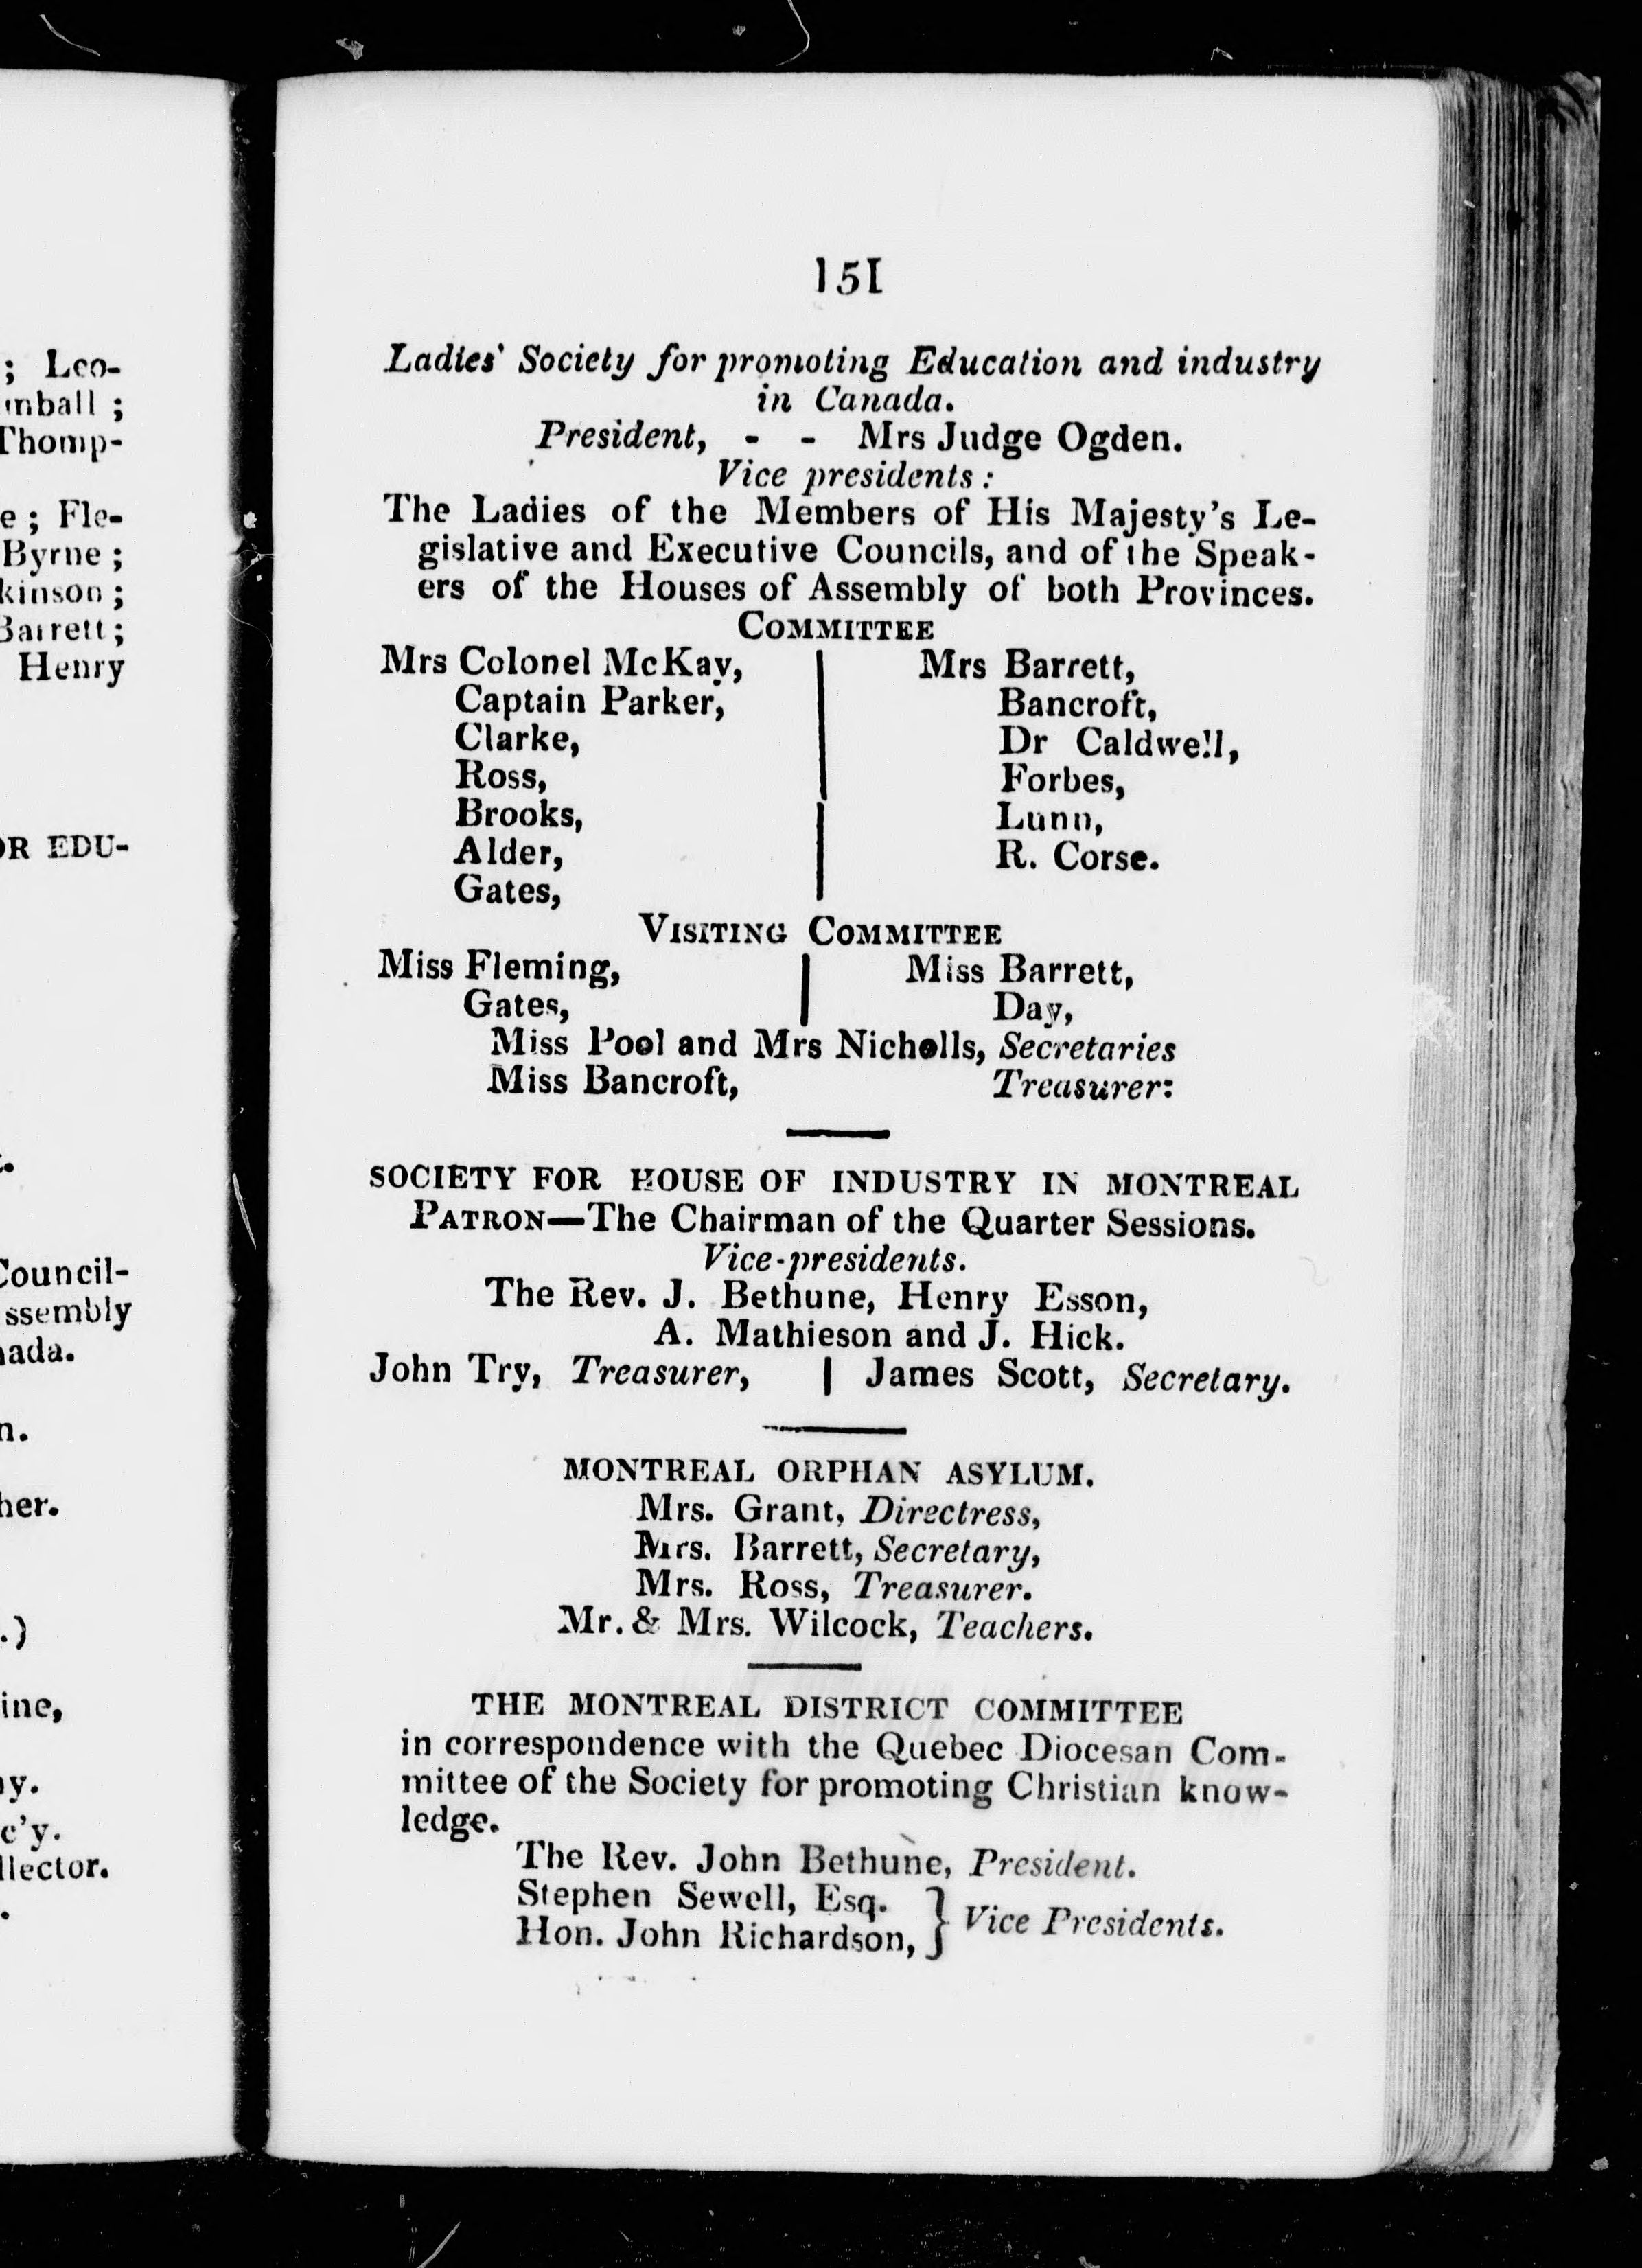 ; Leo-
mball ;
Thomp-
e ; Fle-
Byrne ;
kinson ;
Barrett ;
Henry
OR EDU-
Council-
ssembly
nada.
n.
her.
.)
ine,
ny.
c'y.
llector.
151
Ladies' Society for promoting Education and industry
in Canada.
President, - - Mrs Judge Ogden.
Vice presidents :
The Ladies of the Members of His Majesty's Le-
gislative and Executive Councils, and of the Speak-
ers of the Houses of Assembly of both Provinces.
COMMITTEE
Mrs Colonel McKay, | Mrs Barrett,
Captain Parker, | Bancroft,
Clarke, | Dr Caldwell,
Ross, | Forbes,
Brooks, | Lunn,
Alder, | R. Corse.
Gates,
VISITING COMMITTEE
Miss Fleming, | Miss Barrett,
Gates, | Day,
Miss Pool and Mrs Nicholls, Secretaries
Miss Bancroft, Treasurer:
SOCIETY FOR HOUSE OF INDUSTRY IN MONTREAL
PATRON—The Chairman of the Quarter Sessions.
Vice-presidents.
The Rev. J. Bethune, Henry Esson,
A. Mathieson and J. Hick.
John Try, Treasurer, | James Scott, Secretary.
MONTREAL ORPHAN ASYLUM.
Mrs. Grant, Directress,
Mrs. Barrett, Secretary,
Mrs. Ross, Treasurer.
Mr. & Mrs. Wilcock, Teachers.
THE MONTREAL DISTRICT COMMITTEE
in correspondence with the Quebec Diocesan Com-
mittee of the Society for promoting Christian know-
ledge.
The Rev. John Bethune, President.
Stephen Sewell, Esq. }
Hon. John Richardson, } Vice Presidents.